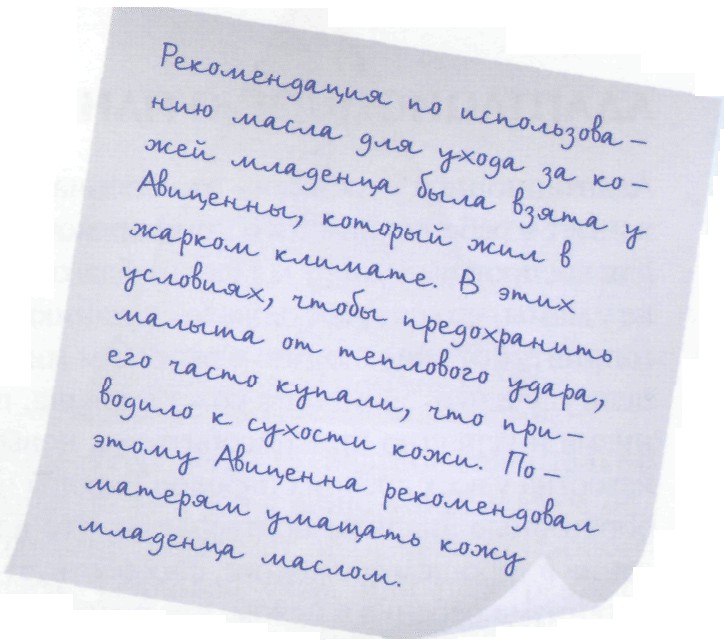 Рекомендация по использова –
нию масла для ухода за ко –
жей младенца была взята у
Авиценны, который жил в
жарком климате. В этих
условиях, чтобы предохранить
малыша от теплового удара,
его часто купали, что при –
водило к сухости кожи. По –
этому Авиценна рекомендовал
матерям умащать кожу
младенца маслом.